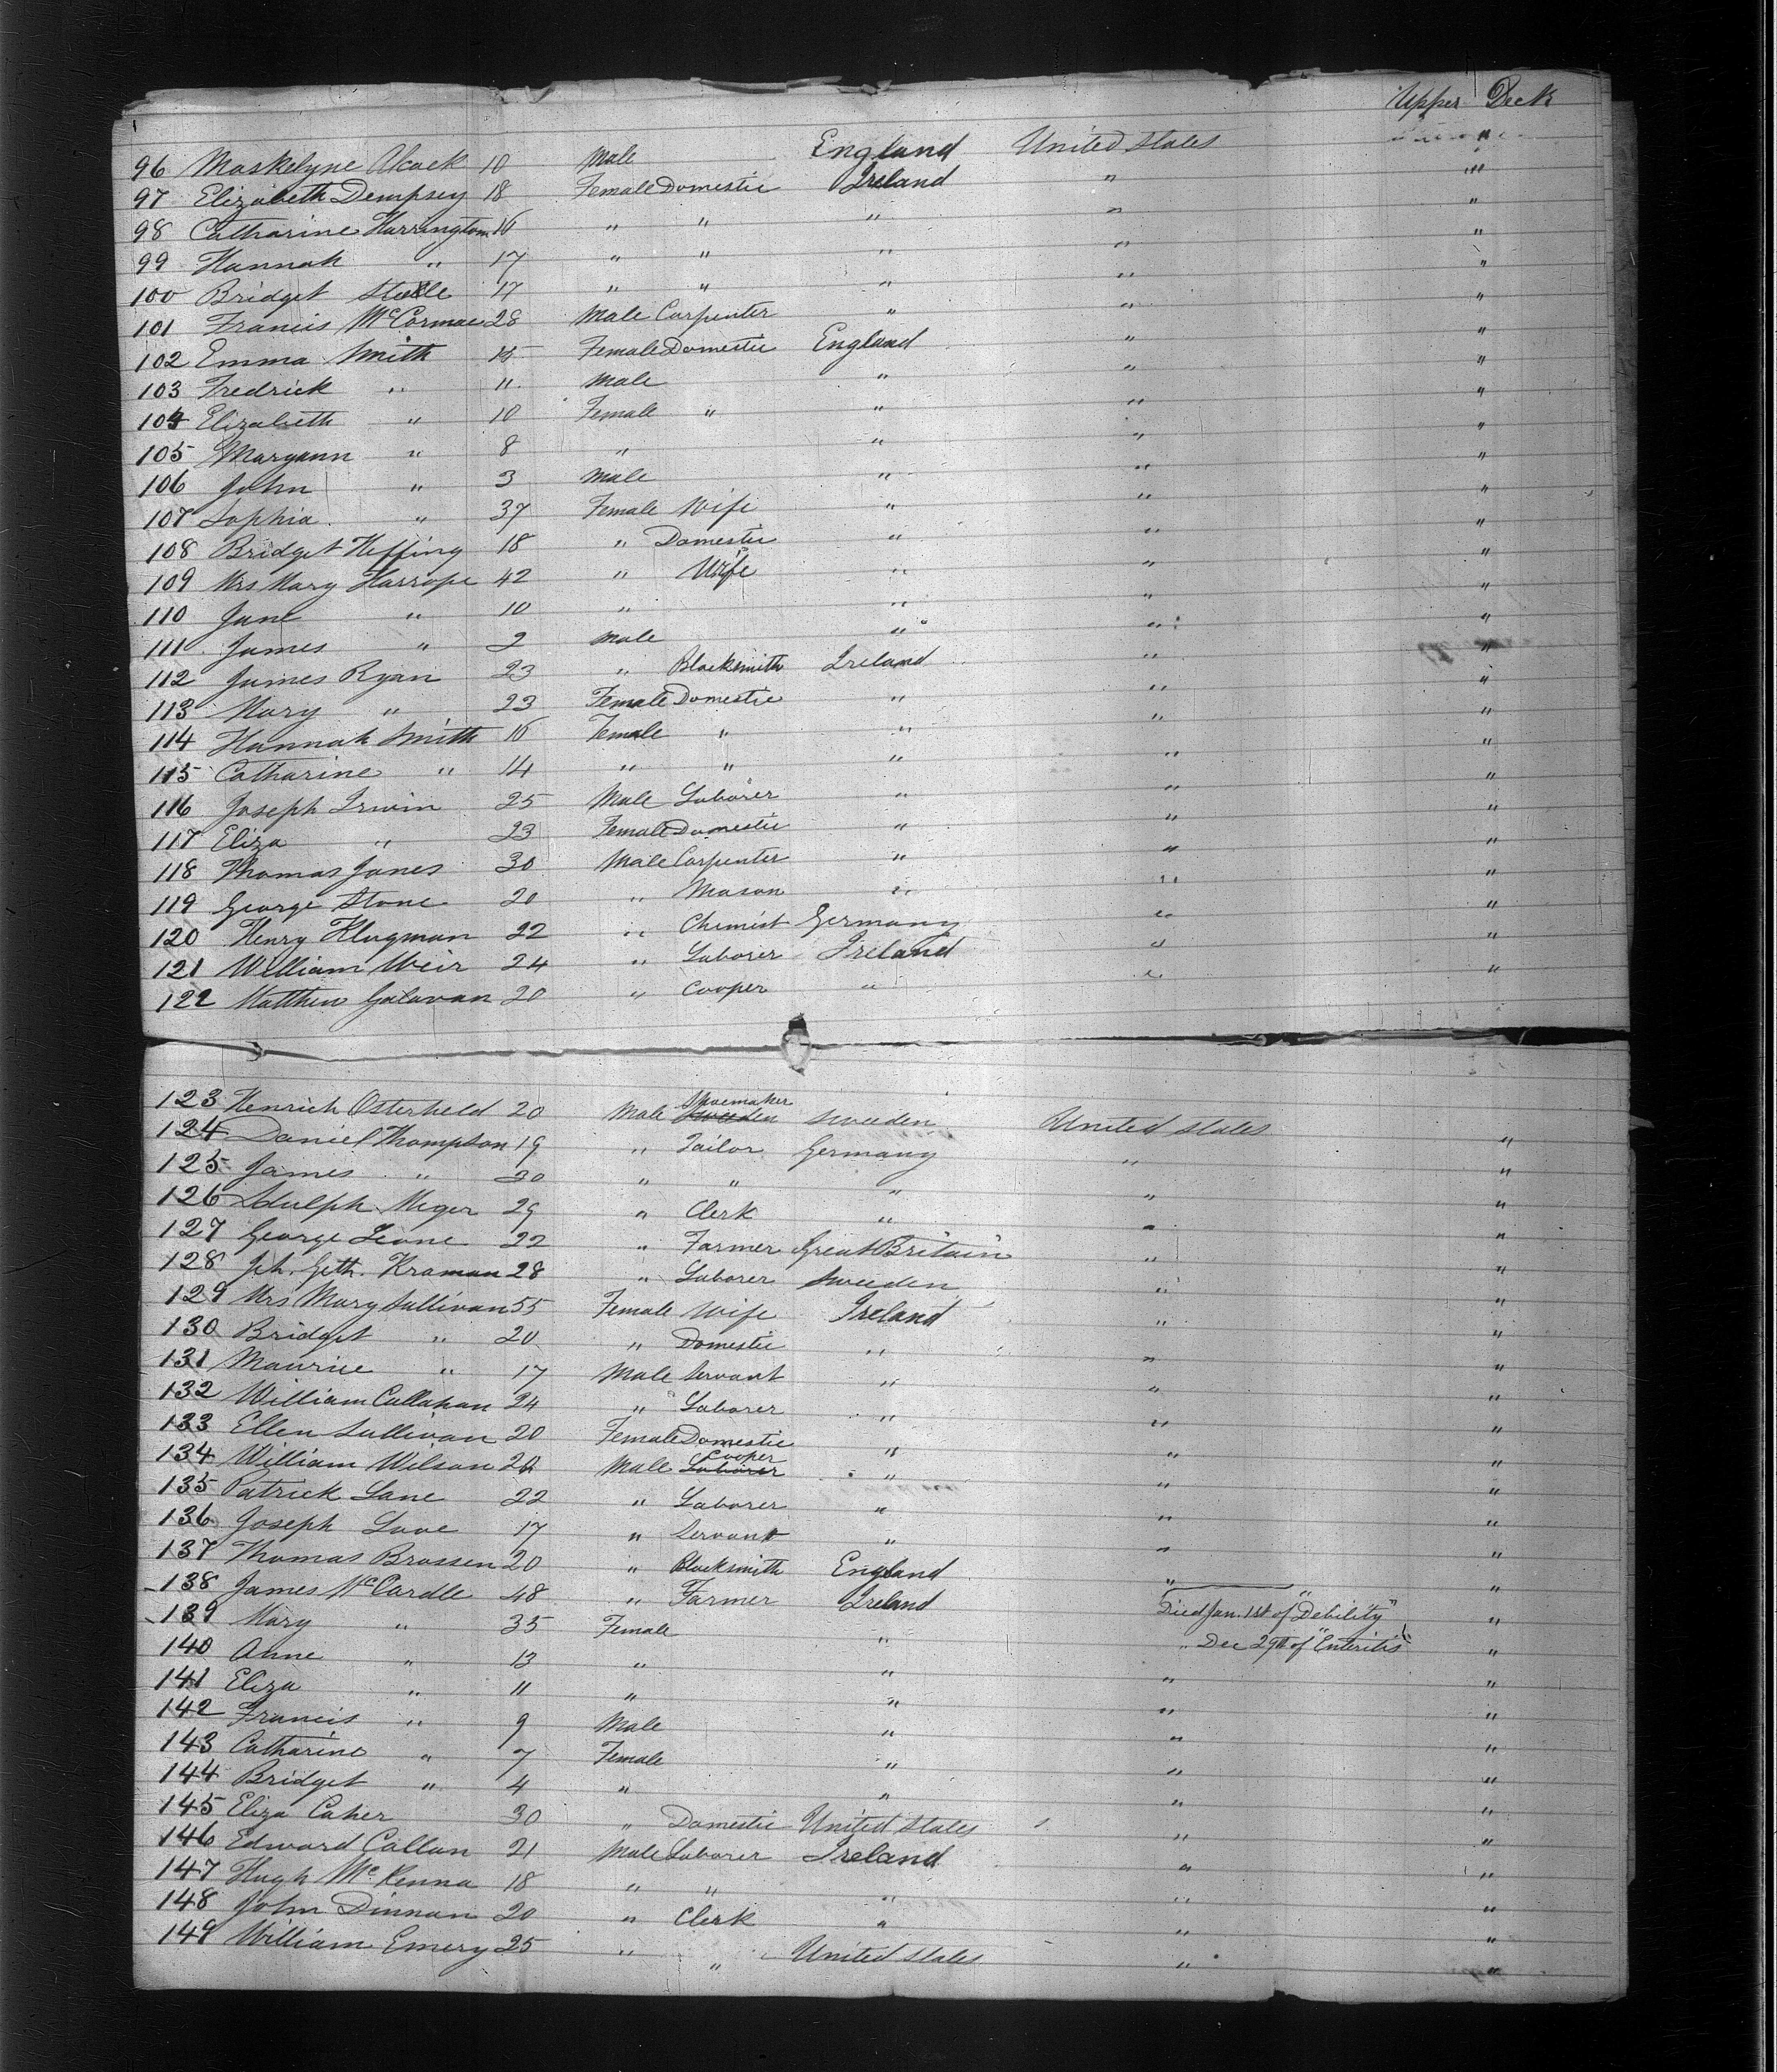 Upper Deck
96 Maskelyne Alcock 10 Male England United States "
97 Elizabeth Dempsey 18 Female Domestic Ireland " "
98 Catharine Harrington 16 " " " " "
99 Hannah " 17 " " " " "
100 Bridget Steele 17 " " " " "
101 Francis McCormac 28 Male Carpenter " " "
102 Emma Smith 15 Female Domestic England " "
103 Fredrick " 11 Male " " "
104 Elizabeth " 10 Female " " " "
105 Maryann " 8 " " " "
106 John " 3 Male " " "
107 Sophia " 37 Female Wife " " "
108 Bridget Heffing 18 " Domestic " " "
109 Mrs Mary Harrope 42 " Wife " " "
110 Jane " 10 " " " "
111 James " 2 Male " " "
112 James Ryan 23 " Blacksmith Ireland " "
113 Mary " 23 Female Domestic " " "
114 Hannah Smith 16 Female " " " "
115 Catharine " 14 " " " " "
116 Joseph Irwin 25 Male Laborer " " "
117 Eliza " 23 Female Domestic " " "
118 Thomas Jones 30 Male Carpenter " " "
119 George Stone 20 " Mason " " "
120 Henry Klugman 22 " Chemist Germany " "
121 William Weir 24 " Laborer Ireland " "
122 Matthew Galavan 20 " Cooper " " "
123 Henrich Osterheld 20 Male Shoemaker Sweeden Sweeden United States "
124 Daniel Thompson 19 " Tailor Germany " "
125 James " 30 " " " " "
126 Adulph Meger 29 " Clerk " " "
127 George Leone 22 " Farmer Great Britain " "
128 Jch. Geth. Kraman 28 " Laborer Sweeden " "
129 Mrs Mary Sullivan 55 Female Wife Ireland " "
130 Bridget " 20 " Domestic " " "
131 Maurice " 17 Male Servant " " "
132 William Callahan 24 " Laborer " " "
133 Ellen Sullivan 20 Female Domestic " " "
134 William Wilson 20 Male Cooper Laborer " " "
135 Patrick Lane 22 " Laborer " " "
136 Joseph Love 17 " Servant " " "
137 Thomas Brossen 20 " Blacksmith England " "
138 James McCardle 48 " Farmer Ireland Died Jan. 1st of "Debility" "
139 Mary " 35 Female " " Dec 29th of "Enteritis" "
140 Anne " 13 " " " "
141 Eliza " 11 " " " "
142 Francis " 9 Male " " "
143 Catharine " 7 Female " " "
144 Bridget " 4 " " " "
145 Eliza Caher 30 " Domestic United States " "
146 Edward Callan 21 Male Laborer Ireland " "
147 Hugh McKenna 18 " " " " "
148 John Dinnan 20 " Clerk " " "
149 William Emery 25 " " United States " "